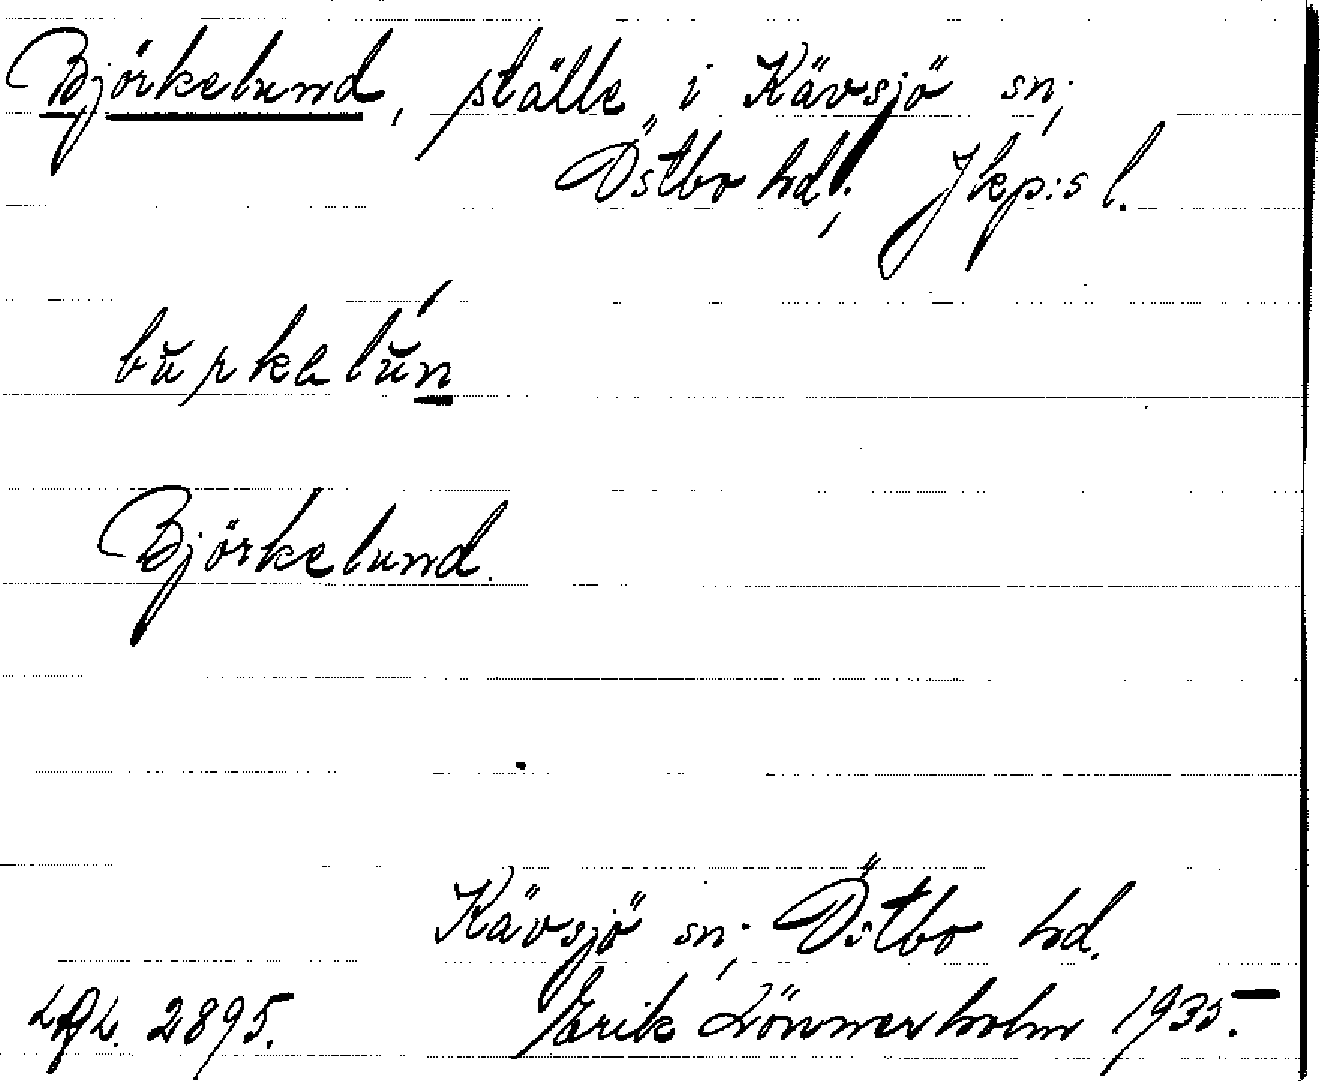 Björkelund, ställe i Kävsjö sn;
Östbo hd; Jkp:s l.
Björkelund.
Kävsjö sn; Östbo hd.
2895. Erik Lönnerholm 1935.